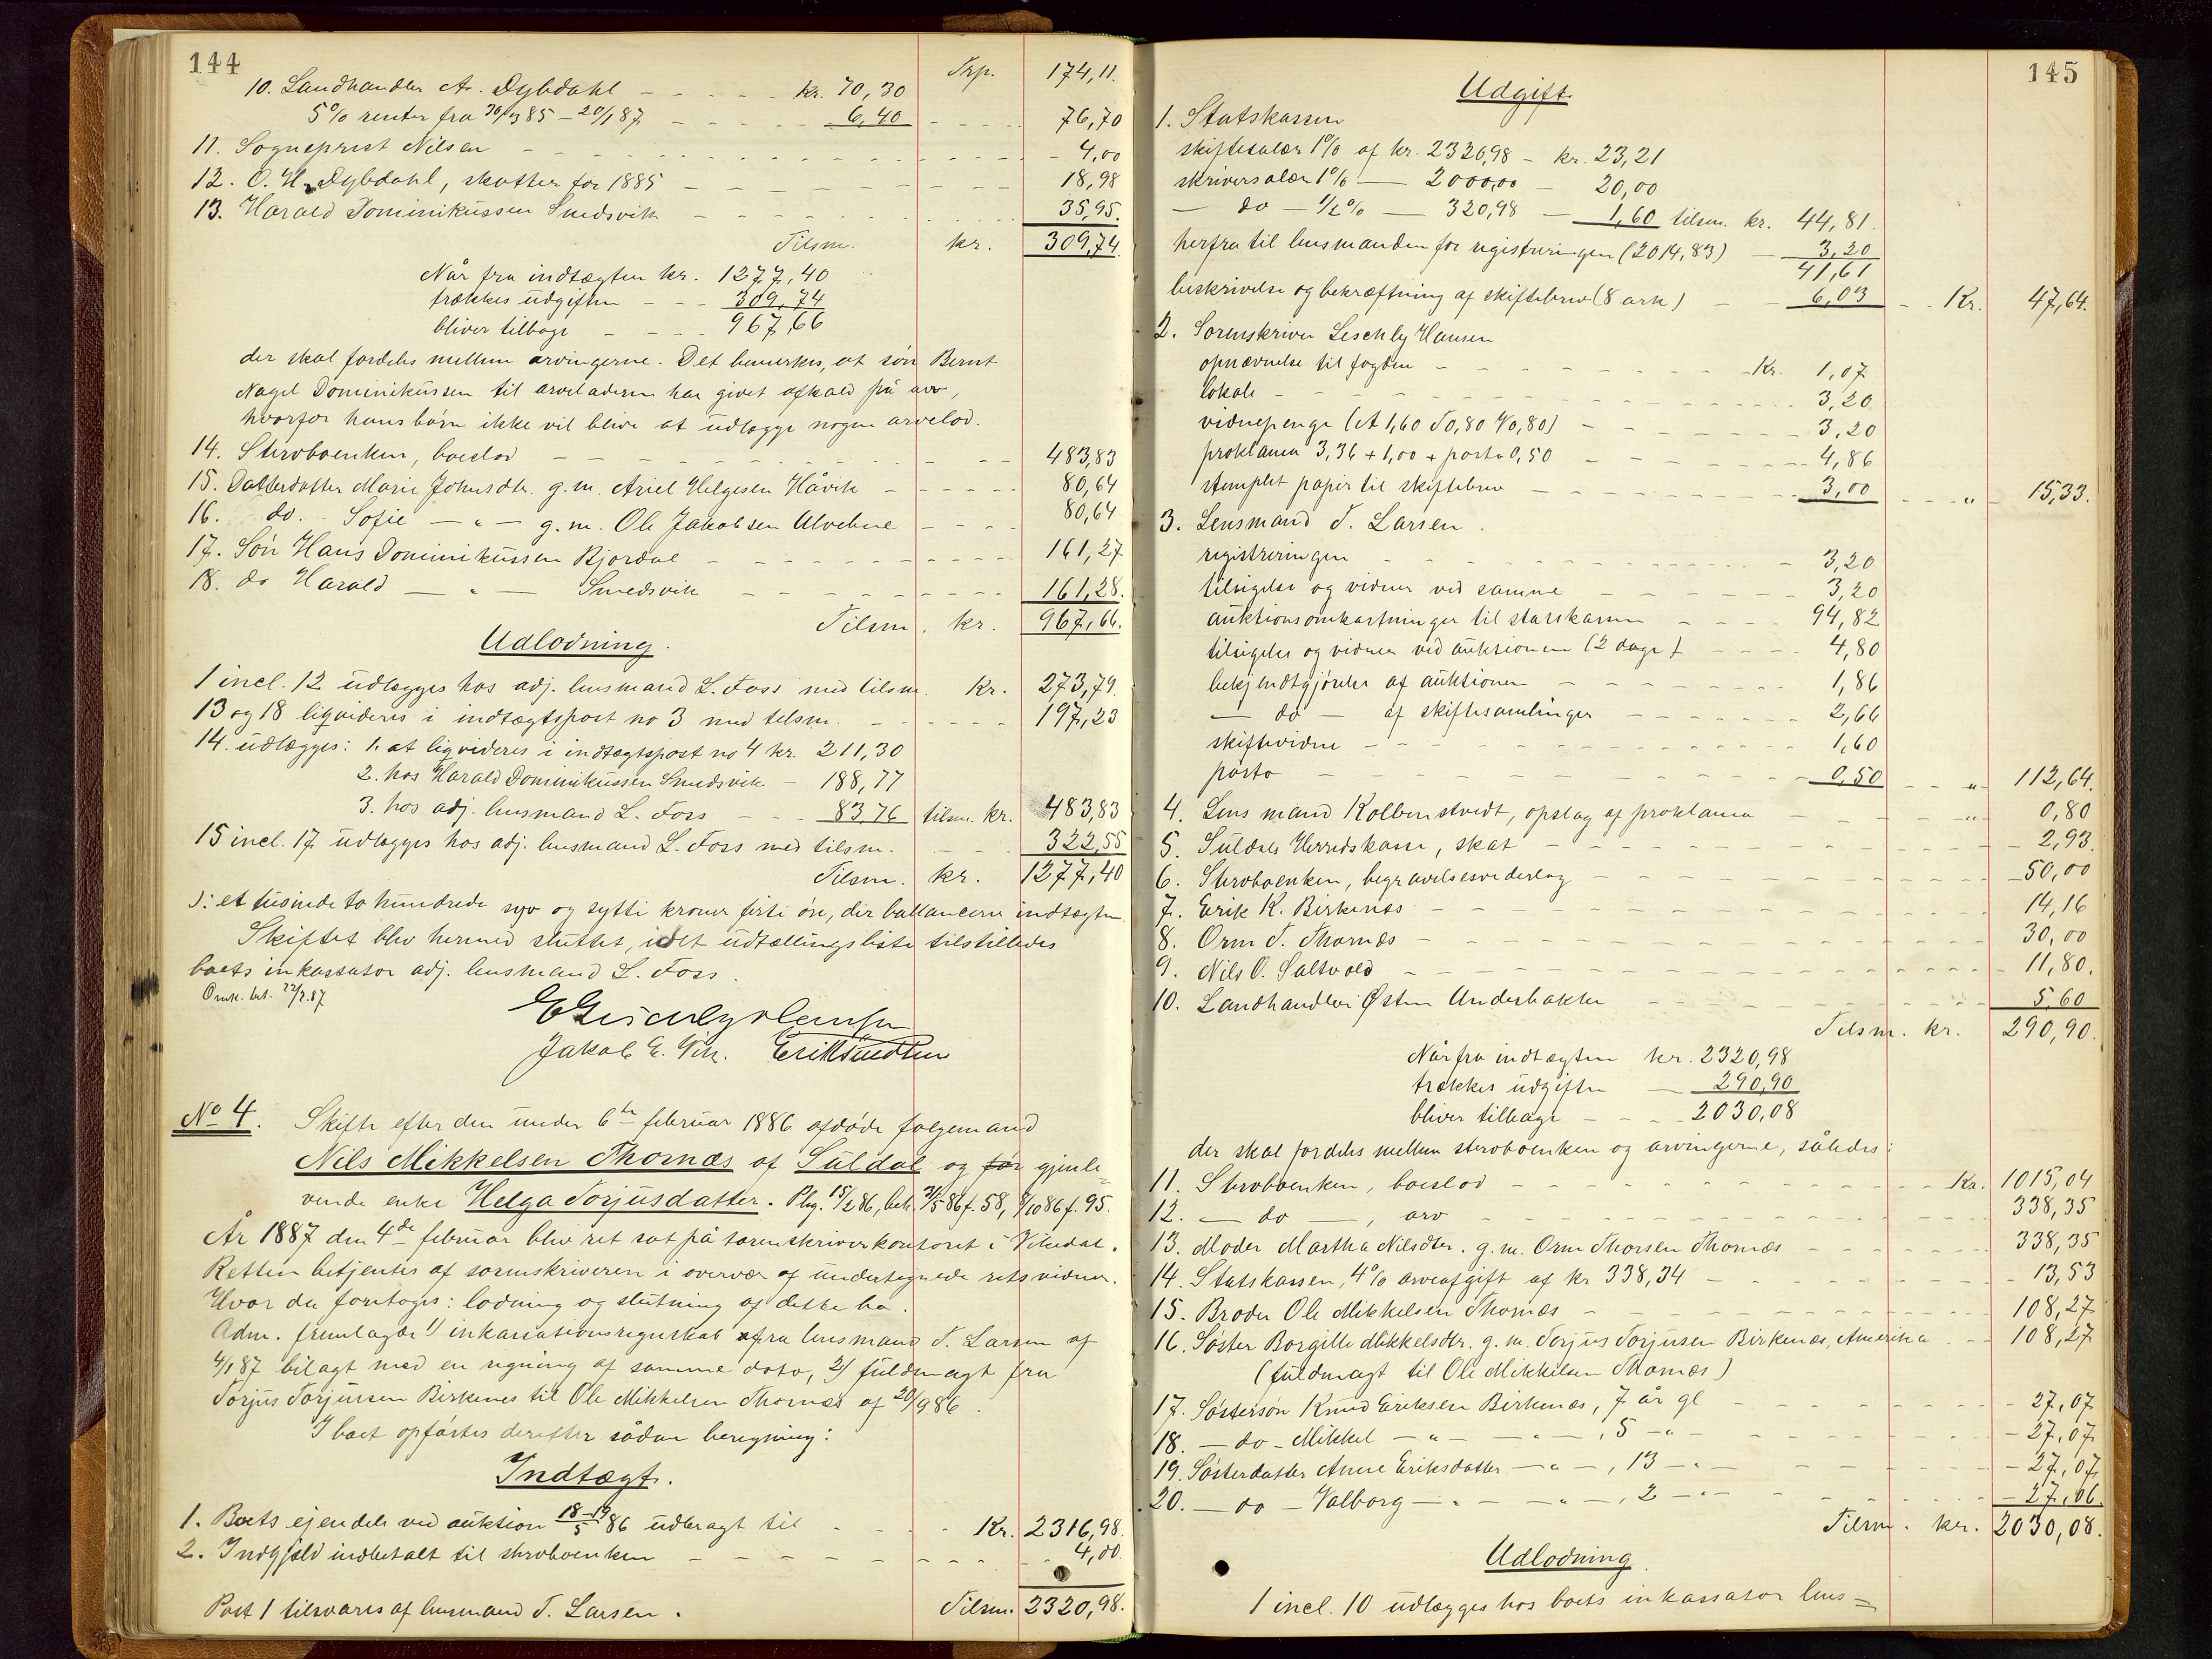 144
Trp. 174,11.
10. Landhandler A. Dybdahl - - - - - kr. 70,30
5% renter fra 30/3 85 - 20/1 87 - - - - - 6,40 - - - - 76,70
11. Sogneprest Nilsen - - - - - 4,00
12. O. H. Dybdahl, skatter for 1885 - - - - - 18,98
13. Harald Dominikussen Smedsvik - - - - - 35,95.
Tilsm. kr. 309,74
Når fra indtægten kr. 1277,40
trækkes udgiften - - - 309,74
bliver tilbage - - - - 967,66
der skal fordeles mellem arvingerne. Det bemerkes, at søn Bernt
Nagel Dominikussen til arveladeren har givet afkald på arv,
hvorfor hans børn ikke vil blive at udlægge nogen arvelod.
14. Stervboenken, boeslod - - - - - 483,83
15. Datterdatter Marie Johnsdtr. g.m. Ariel Helgesen Håvik - - - - - 80,64
16. do. - Sofie - " - g.m. Ole Jakobsen Ulvekne - - - - 80,64
17. Søn Hans Dominikussen Bjordal - - - - - 161,27
18. do Harald - " - Smedsvik - - - - - 161,28.
Tilsm. kr. 967,66.
Udlodning.
1 incl. 12 udlægges hos adj. lensmand L. Foss med tilsm. Kr. 273,79.
13 og 18 ligvideres i indtægtspost no 3 med tilsm. - - - - - 197,23
14. udlægges: 1. at ligvideres i indtægtspost no 4 kr. 211,30
2. hos Harald Dominikussen Smedsvik - 188,77
3. hos adj. lensmand L. Foss - - - 83,76 tilsm. kr. 483,83
15 incl. 17 udlægges hos adj. lensmand L. Foss med tilsm. - - - 322,55
Tilsm. kr. 1277,40
ɔ: et tusinde to hundrede syv og sytti kroner firti øre, der ballancerer indtægten.
Skiftet blev hermed sluttet, idet udtællingsliste tilstilledes
boets inkassator adj. lensmand L. Foss.
Omk. bet. 22/2.87
Jakob E. Vik. Erik Knudsen
No 4. Skifte efter den under 6te februar 1886 afdøde følgemand
Nils Mikkelsen Thornæs af Suldal og før gjenle=
vende enke Helga Torjusdatter. Plg. 15/2 86, beh. 21/5 86 f. 58, 8/10 86 f. 95.
År 1887 den 4de februar blev ret sat på sorenskriverkontoret i Vikedal.
Retten betjentes af sorenskriveren i overvær af undertegnede retsvidner.
Hvor da foretoges: lodning og slutning af dette bo.
Adm. fremlagde 1) inkassationsregnskab afra lensmand T. Larsen af
4/1 87 bilagt med en regning af samme dato, 2) fuldmagt fra
Torjus Torjussen Birkenes til Ole Mikkelsen Thornæs af 20/9 86.
I boet opførtes derefter sådan beregning:
Indtægt.
1. Boets ejendele ved auktion 18-19/5 86 udbragt til - - - - Kr. 2316,98.
2. Indgjæld indbetalt til stervboenken - - - - - 4,00.
Post 1 tilsvares af lensmand T. Larsen. Tilsm. 2320,98.
145
Udgift
1. Statskassen
skiftesalær 1% af kr. 2320,98 - kr. 23,21
skriversalær 1% - 2000,00 - 20,00
- do - 1/2% - 320,98 - 1,60 tilsm. kr. 44,81.
herfra til lensmanden for registreringen (2014,83) - 3,20
41,61
beskrivelse og bekræftning af skiftebrev (8 ark) - - 6,03 - - Kr. 47,64.
2. Sorenskriver Leschly Hansen
opnævnelse til fogden - - - - - Kr. 1,07
lokale - - - - - 3,20
vidnepenge (A 1,60 T 0,80 V 0,80) - - - - - 3,20
proklama 3,36 + 1,00 + porto 0,50 - - - - - 4,86
stemplet papir til skiftebrev - - - - - 3,00 - - - " - 15,33.
3. Lensmand T. Larsen.
registreringen - - - - - 3,20
tilsigelse og vidner ved samme - - - - - 3,20
auktionsomkostninger til statskassen - - - - 94,82
tilsigelse og vidner ved auktionen (2 dage) - - - - 4,80
bekjendtgjørelse af auktionen - - - - - 1,86
- do - af skiftesamlinger - - - - - 2,66
skiftevidne - - - - - 1,60
porto - - - - - 0,50 - - " - 112,64.
4. Lensmand Kolbenstvedt, opslag af proklama - - - - " - 0,80
5. Suldals Herredskasse, skat - - - - - 2,93.
6. Stervboenken, begravelsesvederlag - - - - - 50,00
7. Erik K. Birkenæs - - - - - 14,16
8. Orm T. Thornæs - - - - - 30,00
9. Nils O. Saltvold - - - - - 11,80.
10. Landhandler Østen Underbakke - - - - - 5,60
Tilsm. kr. 290,90.
Når fra indtægten kr. 2320,98
trækkes udgiften - 290,90
bliver tilbage - - - 2030,08
der skal fordeles mellem stervboenken og arvingerne, således:
11. Stervboenken, boeslod - - - - - Kr. 1015,04
12. - do -, arv - - - - - 338,35
13. Moder Martha Nilsdtr. g.m. Orm Thorsen Thornæs - - - - - 338,35
14. Statskassen, 4% arveafgift af kr 338,34 - - - - - 13,53
15. Broder Ole Mikkelsen Thornæs - - - - - 108,27
16. Søster Borgille Mikkelsdtr. g.m. Torjus Torjusen Birkenæs, Amerika - - 108,27
(fuldmagt til Ole Mikkelsen Thornæs)
17. Søstersøn Knud Eriksen Birkenæs, 7 år gl - - - - - 27,07
18. - do - Mikkel - " - " -, 5 - " - - - - - 27,07
19. Søsterdatter Anne Eriksdatter - " -, 13 - " - - - - - 27,07
20. - do - Valborg - " - " -, 2 - " - - - - - 27,06.
Tilsm. kr. 2030,08.
Udlodning.
1 incl. 10 udlægges hos boets inkassator lens=